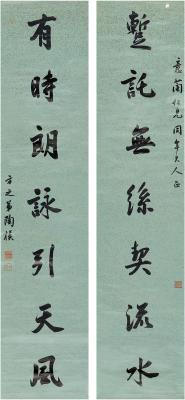 意蘭仁兄同年大人正
蹔託無絃契流水
有時朗詠引天風
方之弟陶模